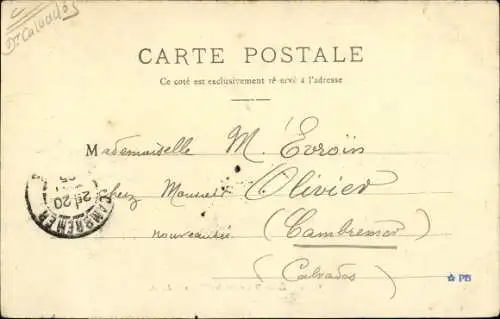 Dt Calvados
CARTE POSTALE
Ce coté est exclusivement réservé à l'adresse
Mademoiselle M. Evroïn
chez Monsieur Olivier
nouveautés (Cambremer)
(Calvados)
CAMBREMER
20
PB